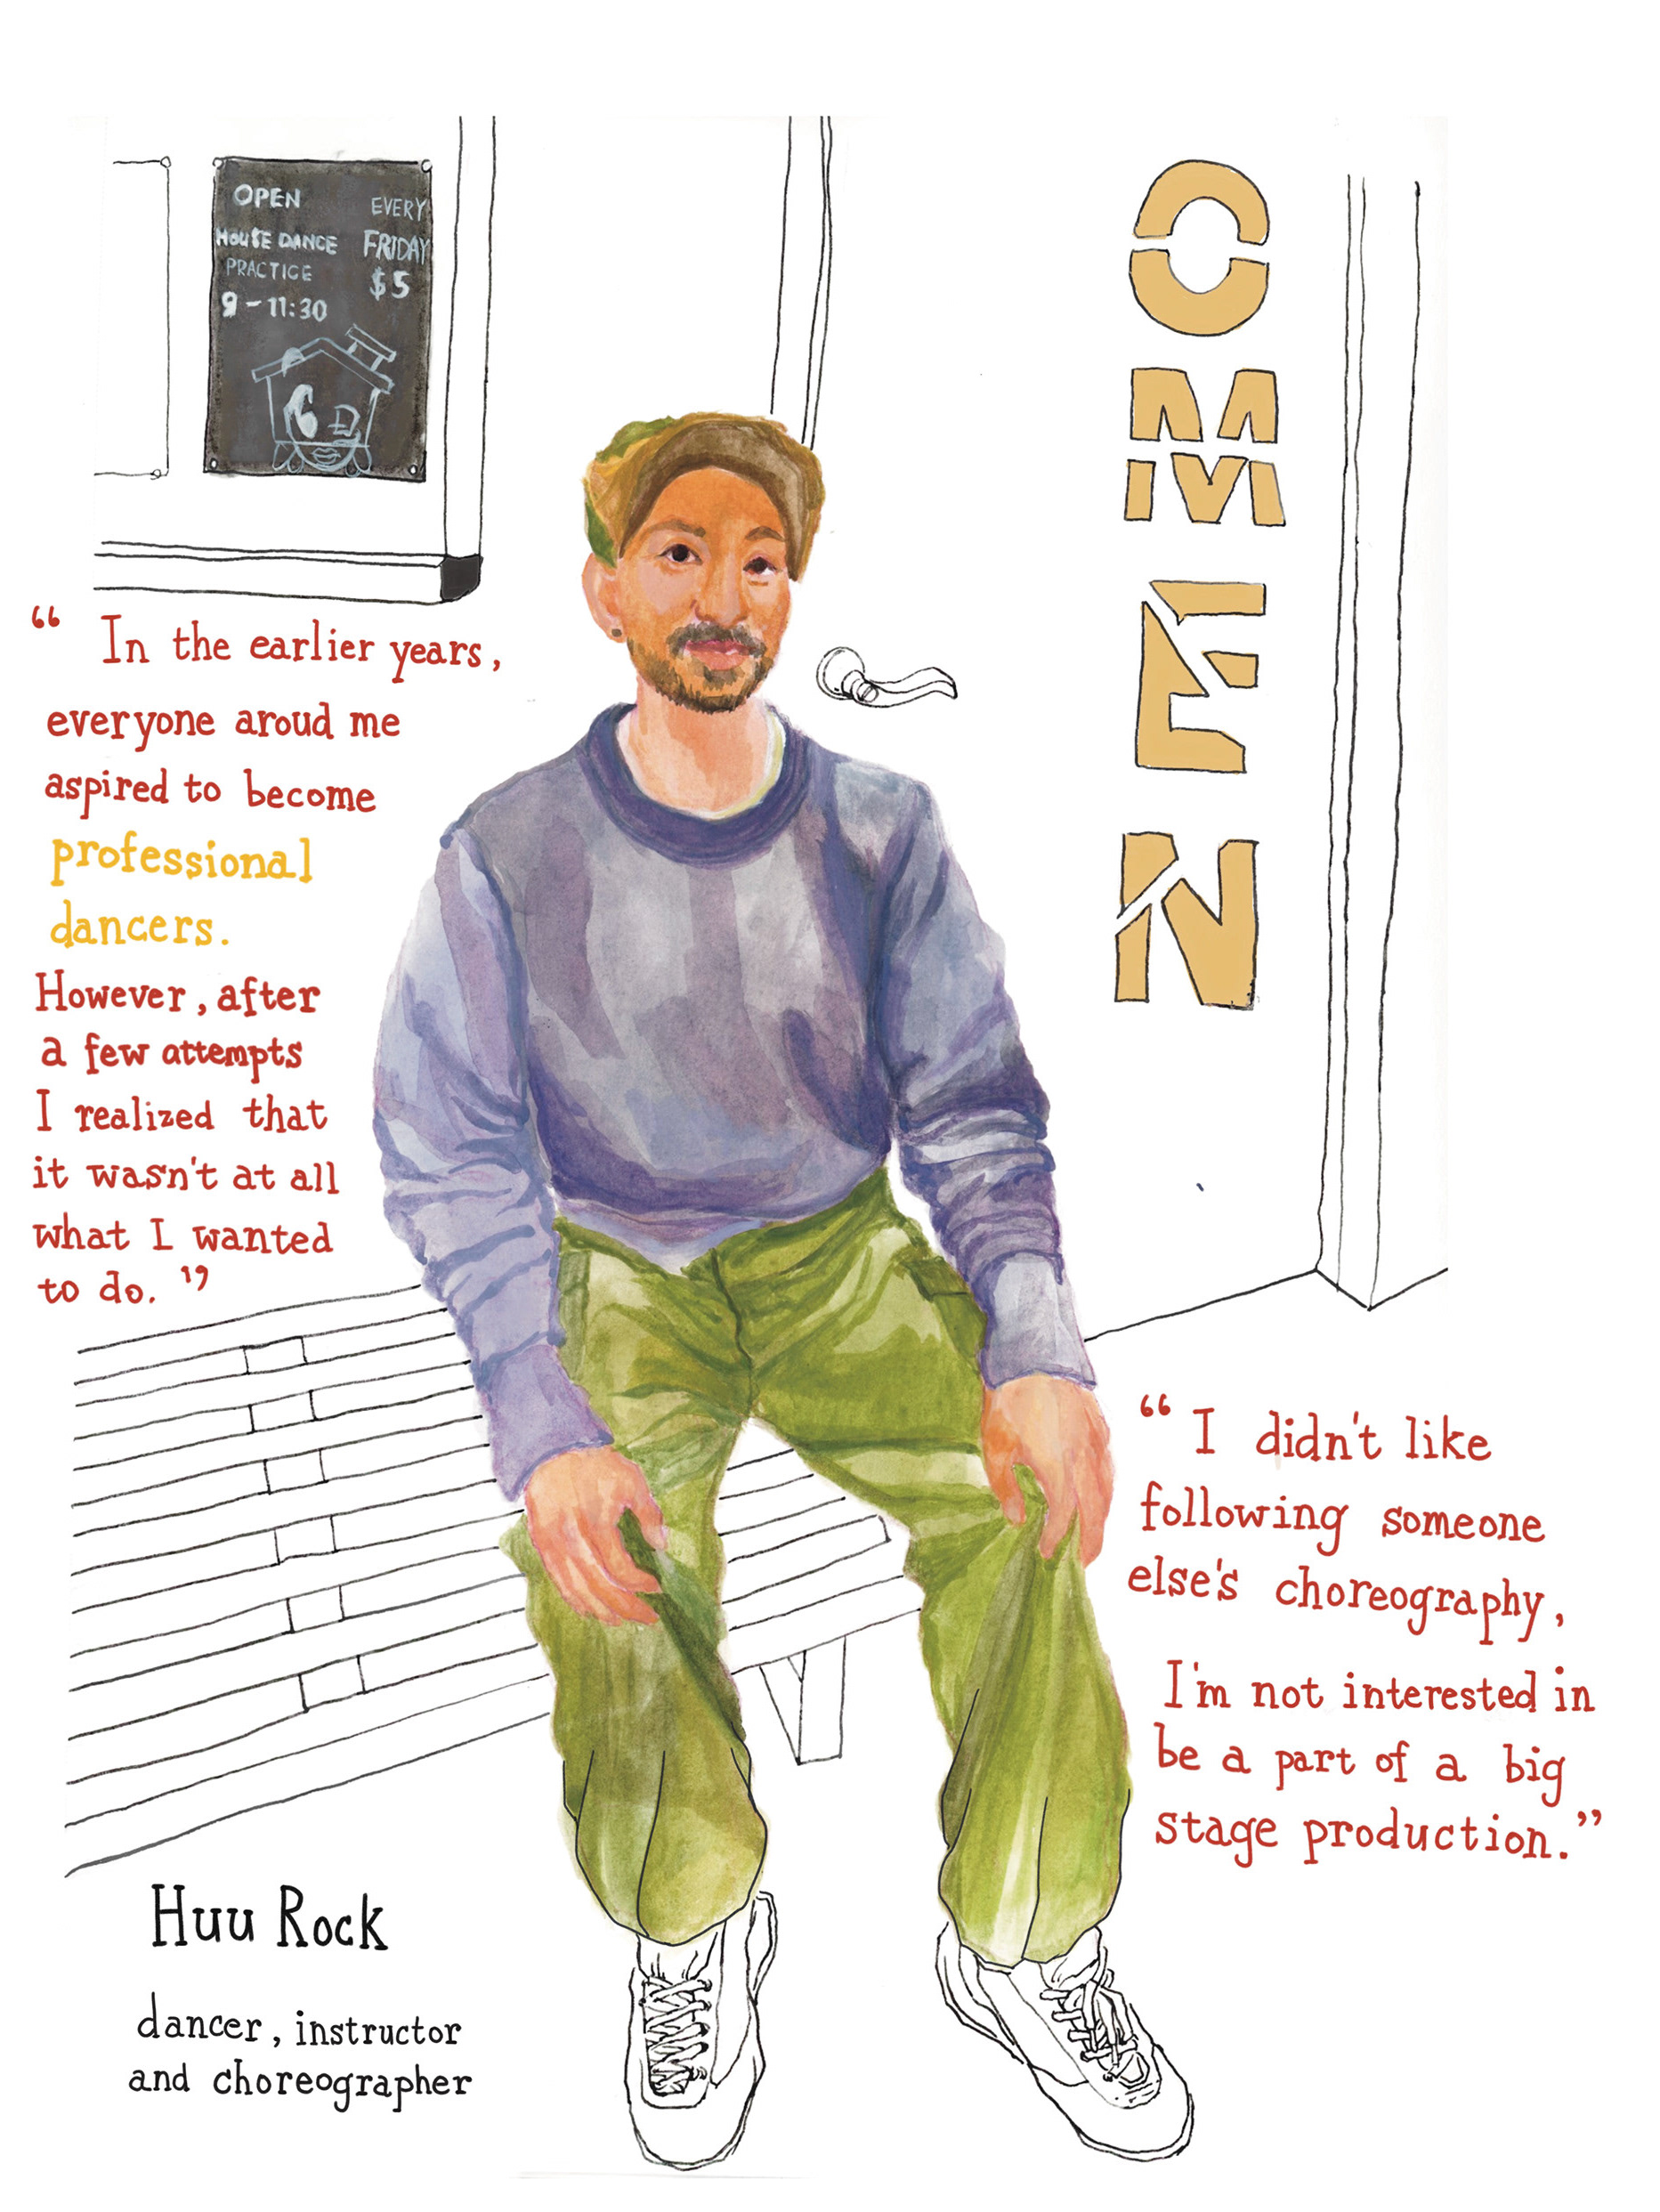 OPEN
HOUSE DANCE
PRACTICE
9-11:30
EVERY
FRIDAY
$5
OMEN
“ In the earlier years,
everyone aroud me
aspired to become
professional
dancers.
However, after
a few attempts
I realized that
it wasn't at all
what I wanted
to do. ”
“ I didn't like
following someone
else's choreography,
I'm not interested in
be a part of a big
stage production.”
Huu Rock
dancer, instructor
and choreographer